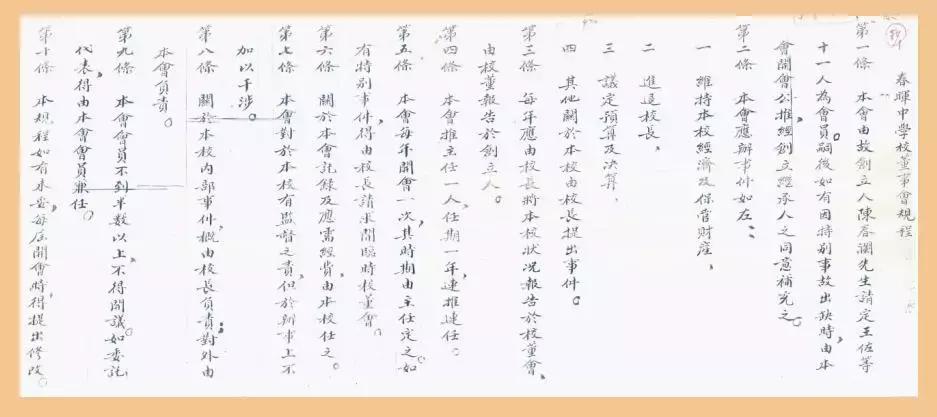 春暉中學校董事會規程
第一條 本會由故創立人陳春瀾先生請定王佐等
十一人為會員。嗣後如有因特別事故出缺時,由本
會開會公推,經創立繼承人之同意補充之。
第二條 本會應辦事件如左:
一 維持本校經濟及保管財產,
二 進退校長,
三 議定預算及決算,
四 其他關於本校由校長提出事件。
第三條 每年應由校長將本校狀況報告於校董會,
由校董報告於創立人。
第四條 本會推主任一人,任期一年,連推連任。
第五條 本會每年開會一次,其時期由主任定之。如
有特別事件,得由校長請求開臨時校董會。
第六條 關於本會記錄及應需經費,由本校任之。
第七條 本會對於本校有監督之責,但於辦事上不
加以干涉。
第八條 關於本校內部事件,概由校長負責;對外由
本會負責。
第九條 本會會員不到半數以上,不得開議。如委託
代表,得由本會會員兼任。
第十條 本規程如有未妥,每屆開會時,得提出修改。